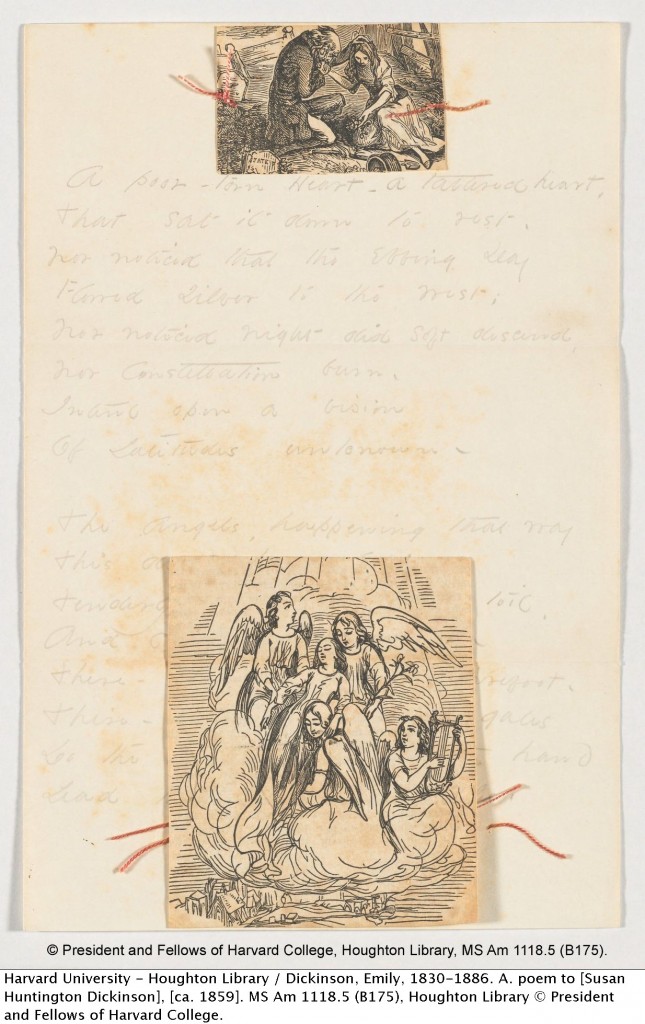 A poor – torn Heart – a tattered heart,
That sat it down to rest.
Nor noticed that the Ebbing Day
Flowed Silver to the West;
Nor noticed night did soft descend,
Nor Constellation burn.
Intent opon a vision
Of Latitudes unknown –
The Angels, happening that way
This
toil,
And
There –
There – gales
Do the hand
Lead
© President and Fellows of Harvard College, Houghton Library, MS Am 1118.5 (B175).
Harvard University - Houghton Library / Dickinson, Emily, 1830-1886. A. poem to [Susan
Huntington Dickinson], [ca. 1859]. MS Am 1118.5 (B175), Houghton Library © President
and Fellows of Harvard College.